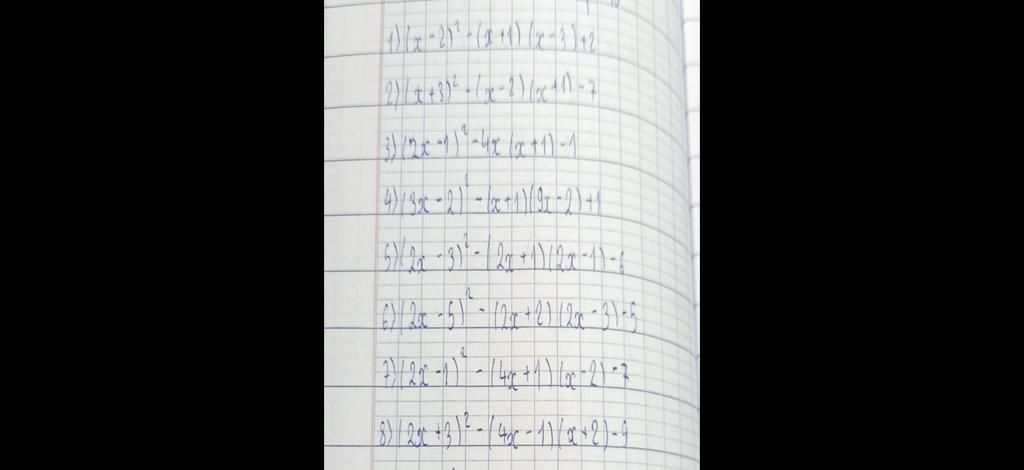 1) (x-2)² - (x+1)(x-3)+2
2) (x+3)² - (x-2)(x+1)-7
3) (2x-1)² - 4x(x+1)-1
4) (3x-2)² - (x+1)(9x-2)+1
5) (2x-3)² - (2x+1)(2x-1)-6
6) (2x-5)² - (2x+2)(2x-3)-5
7) (2x-1)² - (4x+1)(x-2)-7
8) (2x+3)² - (4x-1)(x+2)-9